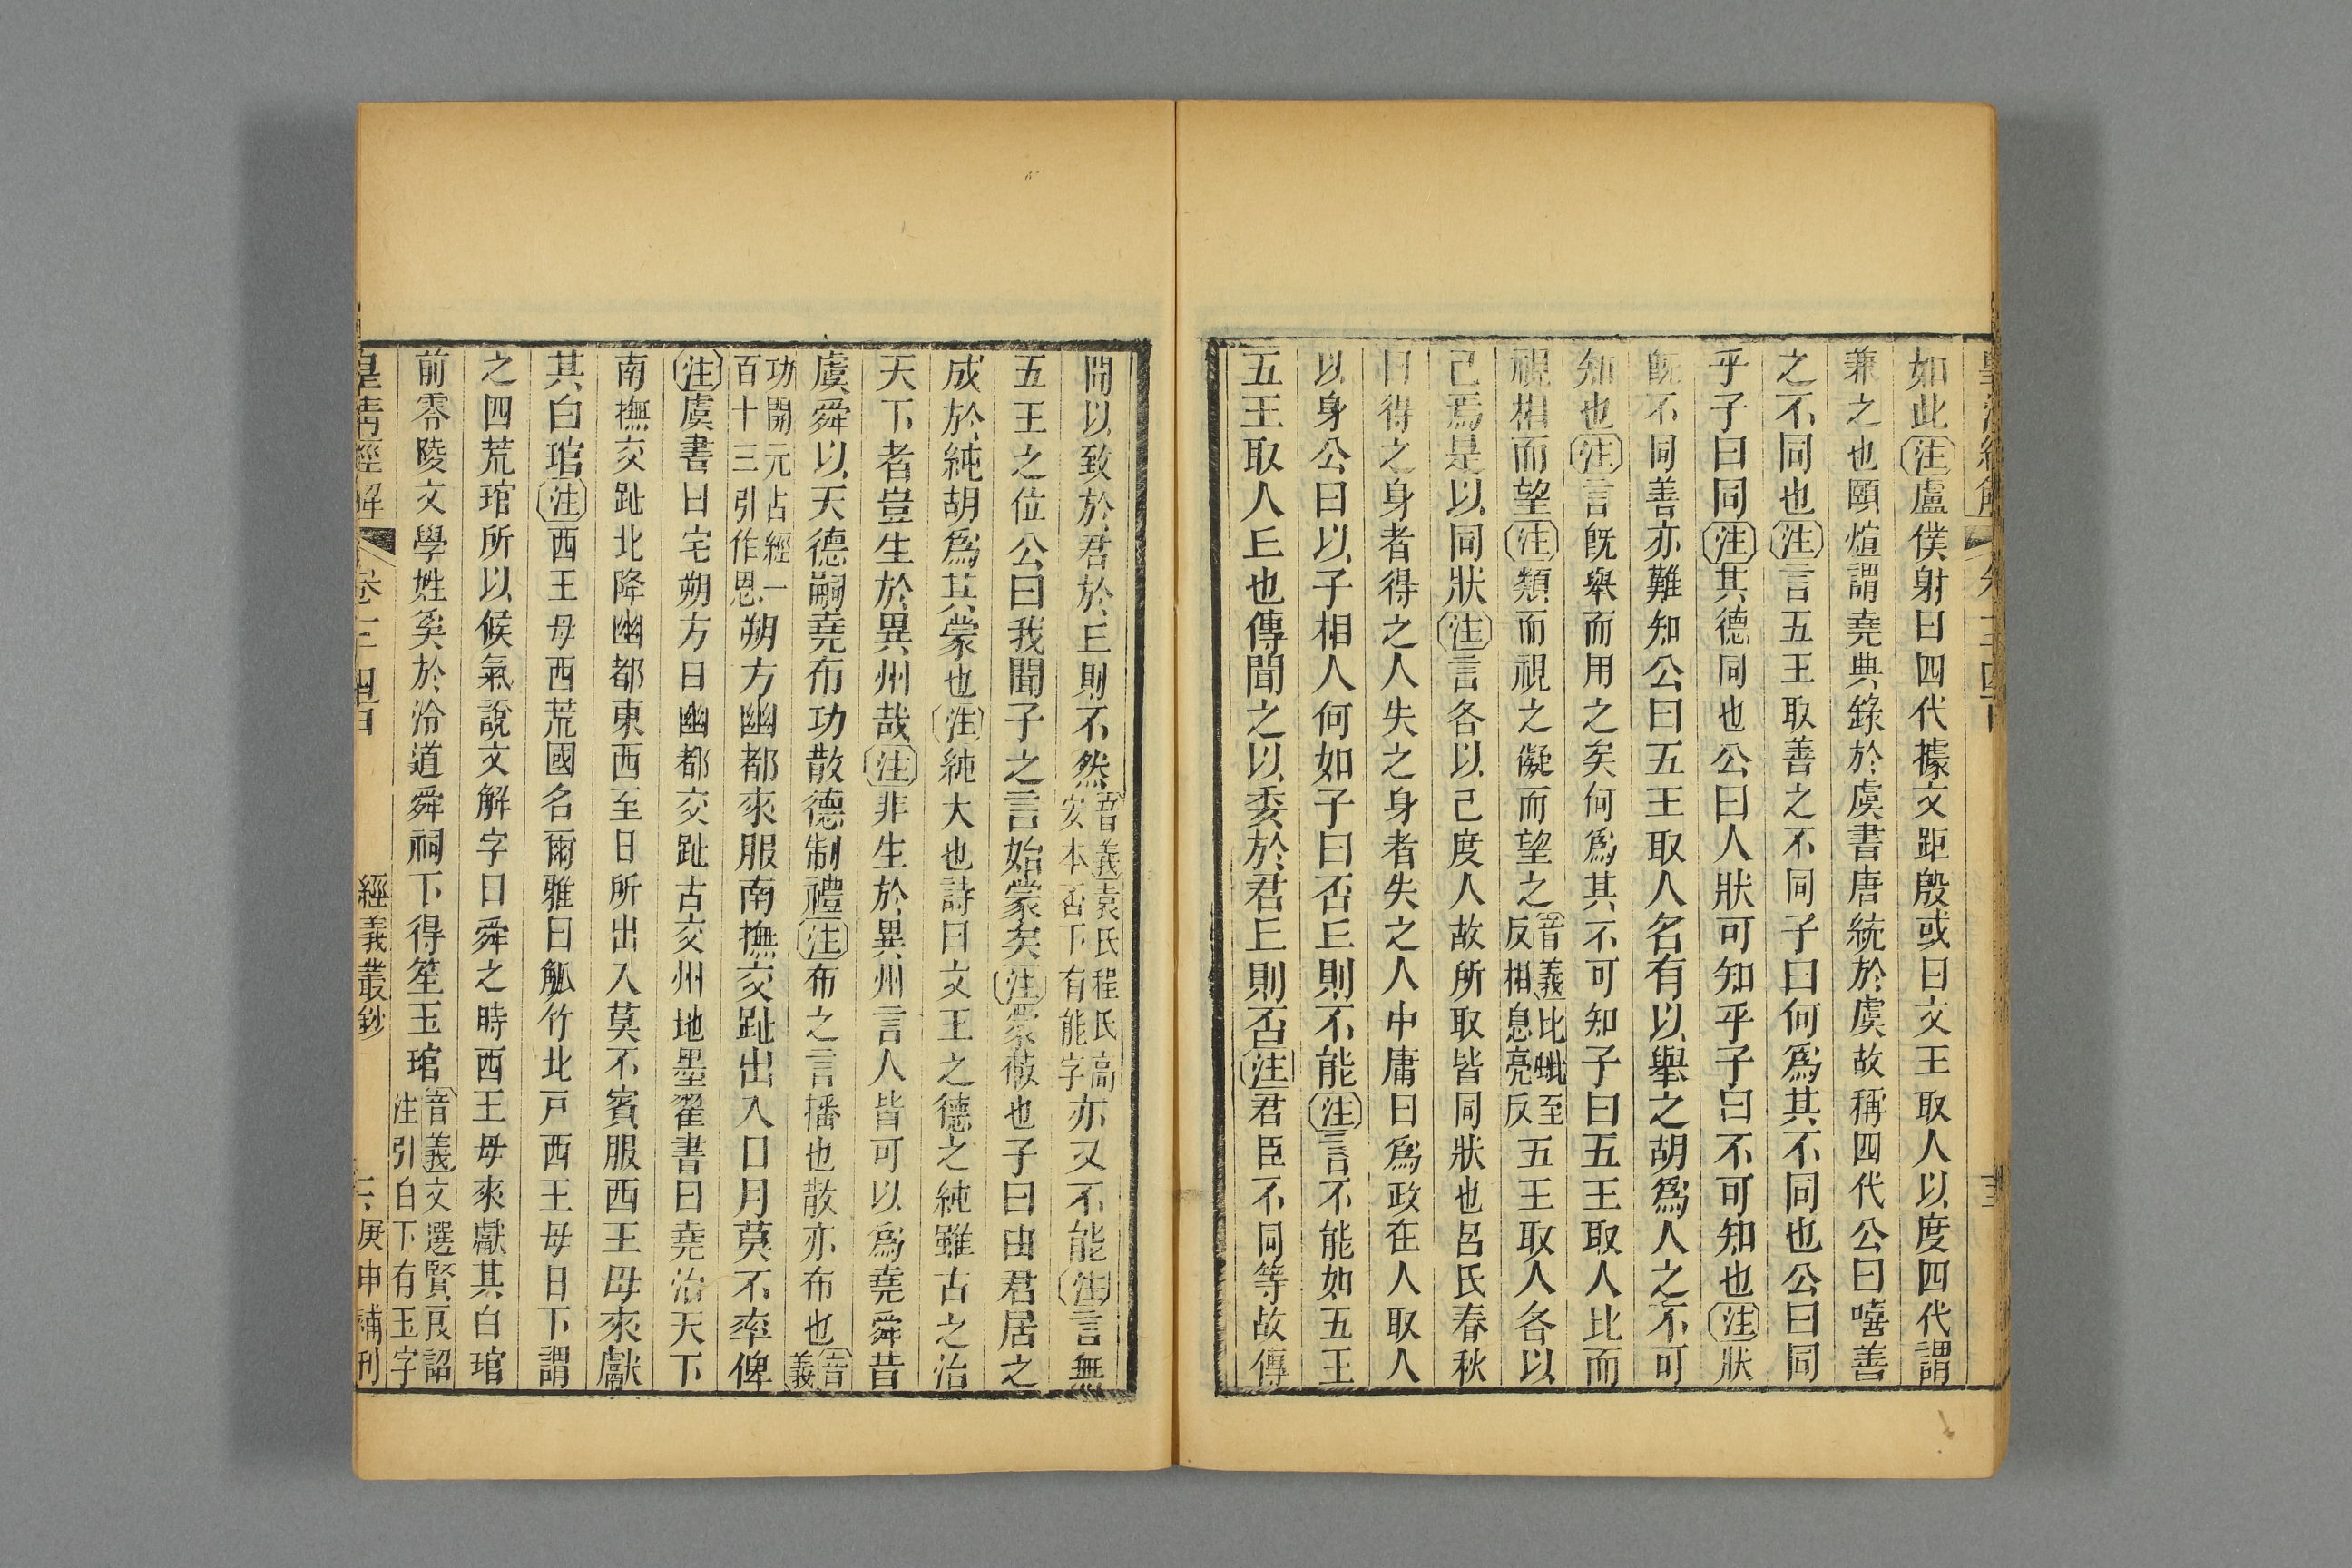 如此注盧僕射曰四代據文距殷或曰文王取人以度四代謂
兼之也頤煊謂堯典錄於虞書唐統於虞故稱四代公曰嘻善
之不同也注言五王取善之不同子曰何爲其不同也公曰同
乎子曰同注其德同也公曰人狀可知乎子曰不可知也注狀
既不同善亦難知公曰五王取人名有以舉之胡爲人之不可
知也注言既舉而用之矣何爲其不可知子曰五王取人比而
視相而望注類而視之儗而望之音義比毗至反相息亮反五王取人各以
己焉是以同狀注言各以己度人故所取皆同狀也呂氏春秋
曰得之身者得之人失之身者失之人中庸曰爲政在人取人
以身公曰以子相人何如子曰否丘則不能注言不能如五王
五王取人丘也傳聞之以委於君丘則否注君臣不同等故傳
聞以致於君於丘則不然音義袁氏程氏高安本否下有能字亦又不能注言無
五王之位公曰我聞子之言始蒙矣注蒙蔽也子曰由君居之
成於純胡爲其蒙也注純大也詩曰文王之德之純雖古之治
天下者豈生於異州哉注非生於異州言人皆可以爲堯舜昔
虞舜以天德嗣堯布功散德制禮注布之言播也散亦布也音義
功開元占經一百十三引作恩朔方幽都來服南撫交趾出入日月莫不率俾
注虞書曰宅朔方曰幽都交趾古交州地墨翟書曰堯治天下
南撫交趾北降幽都東西至日所出入莫不賓服西王母來獻
其白琯注西王母西荒國名爾雅曰觚竹北戶西王母日下謂
之四荒琯所以候氣說文解字曰舜之時西王母來獻其白琯
前零陵文學姓奚於泠道舜祠下得笙玉琯音義文選賢良詔注引白下有玉字
皇清經解 經義叢鈔 庚申補刊